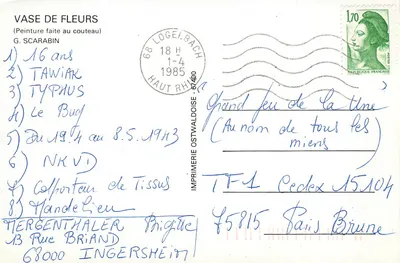 VASE DE FLEURS
(Peinture faite au couteau)
G. SCARABIN
1) 16 ans
2) TAWIAK
3) TYPHUS
4) Le Bug
5) Du 19.4 au 8.5.1943
6) NKVD
7) Colporteur de Tissus
8) Mandelieu
MERGENTHALER Brigitte
13 Rue BRIAND
68000 INGERSHEIM
68 LOGELBACH
18 H
1-4
1985
HAUT RHIN
IMPRIMERIE OSTWALDOISE - 67400
1,70
REPUBLIQUE FRANÇAISE
"Grand Jeu de la Une"
(Au nom de tous les
miens)
TF1 Cedex 15104
75815 Paris Brune